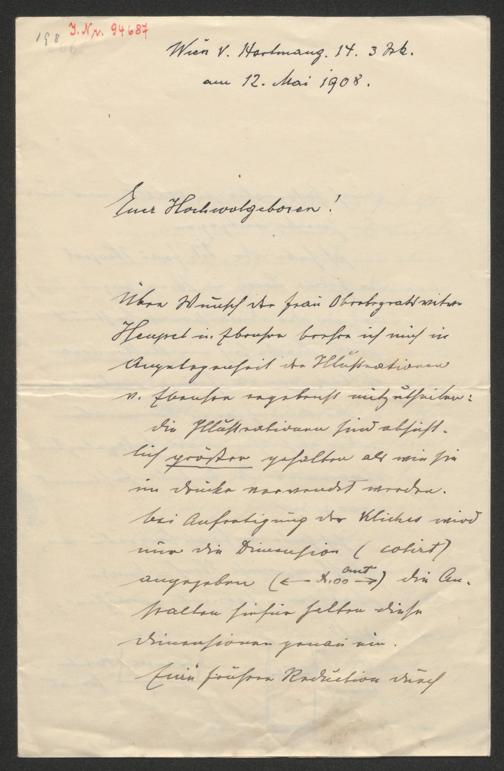 198
I.N. 94687
Wien V. Hartmang. 14. 3 Stk.
am 12. Mai 1908.
Euer Hochwolgeboren!
Über Wunsch der Frau Oberbergratswitwe
in Ebensee beehre ich mich in
Angelegenheit der Illustrationen
v. Ebensee ergebenst mitzutheilen:
die Illustrationen sind absicht-
lich größer gehalten als wie sie
im Drucke verwendet werden.
bei Anfertigung der Kliches wird
nur die Dimension (cotirt)
angegeben (← x.00 cmt →) die An-
stalten hiefür halten diese
Dimensionen genau ein.
Eine frühere Reduction durch